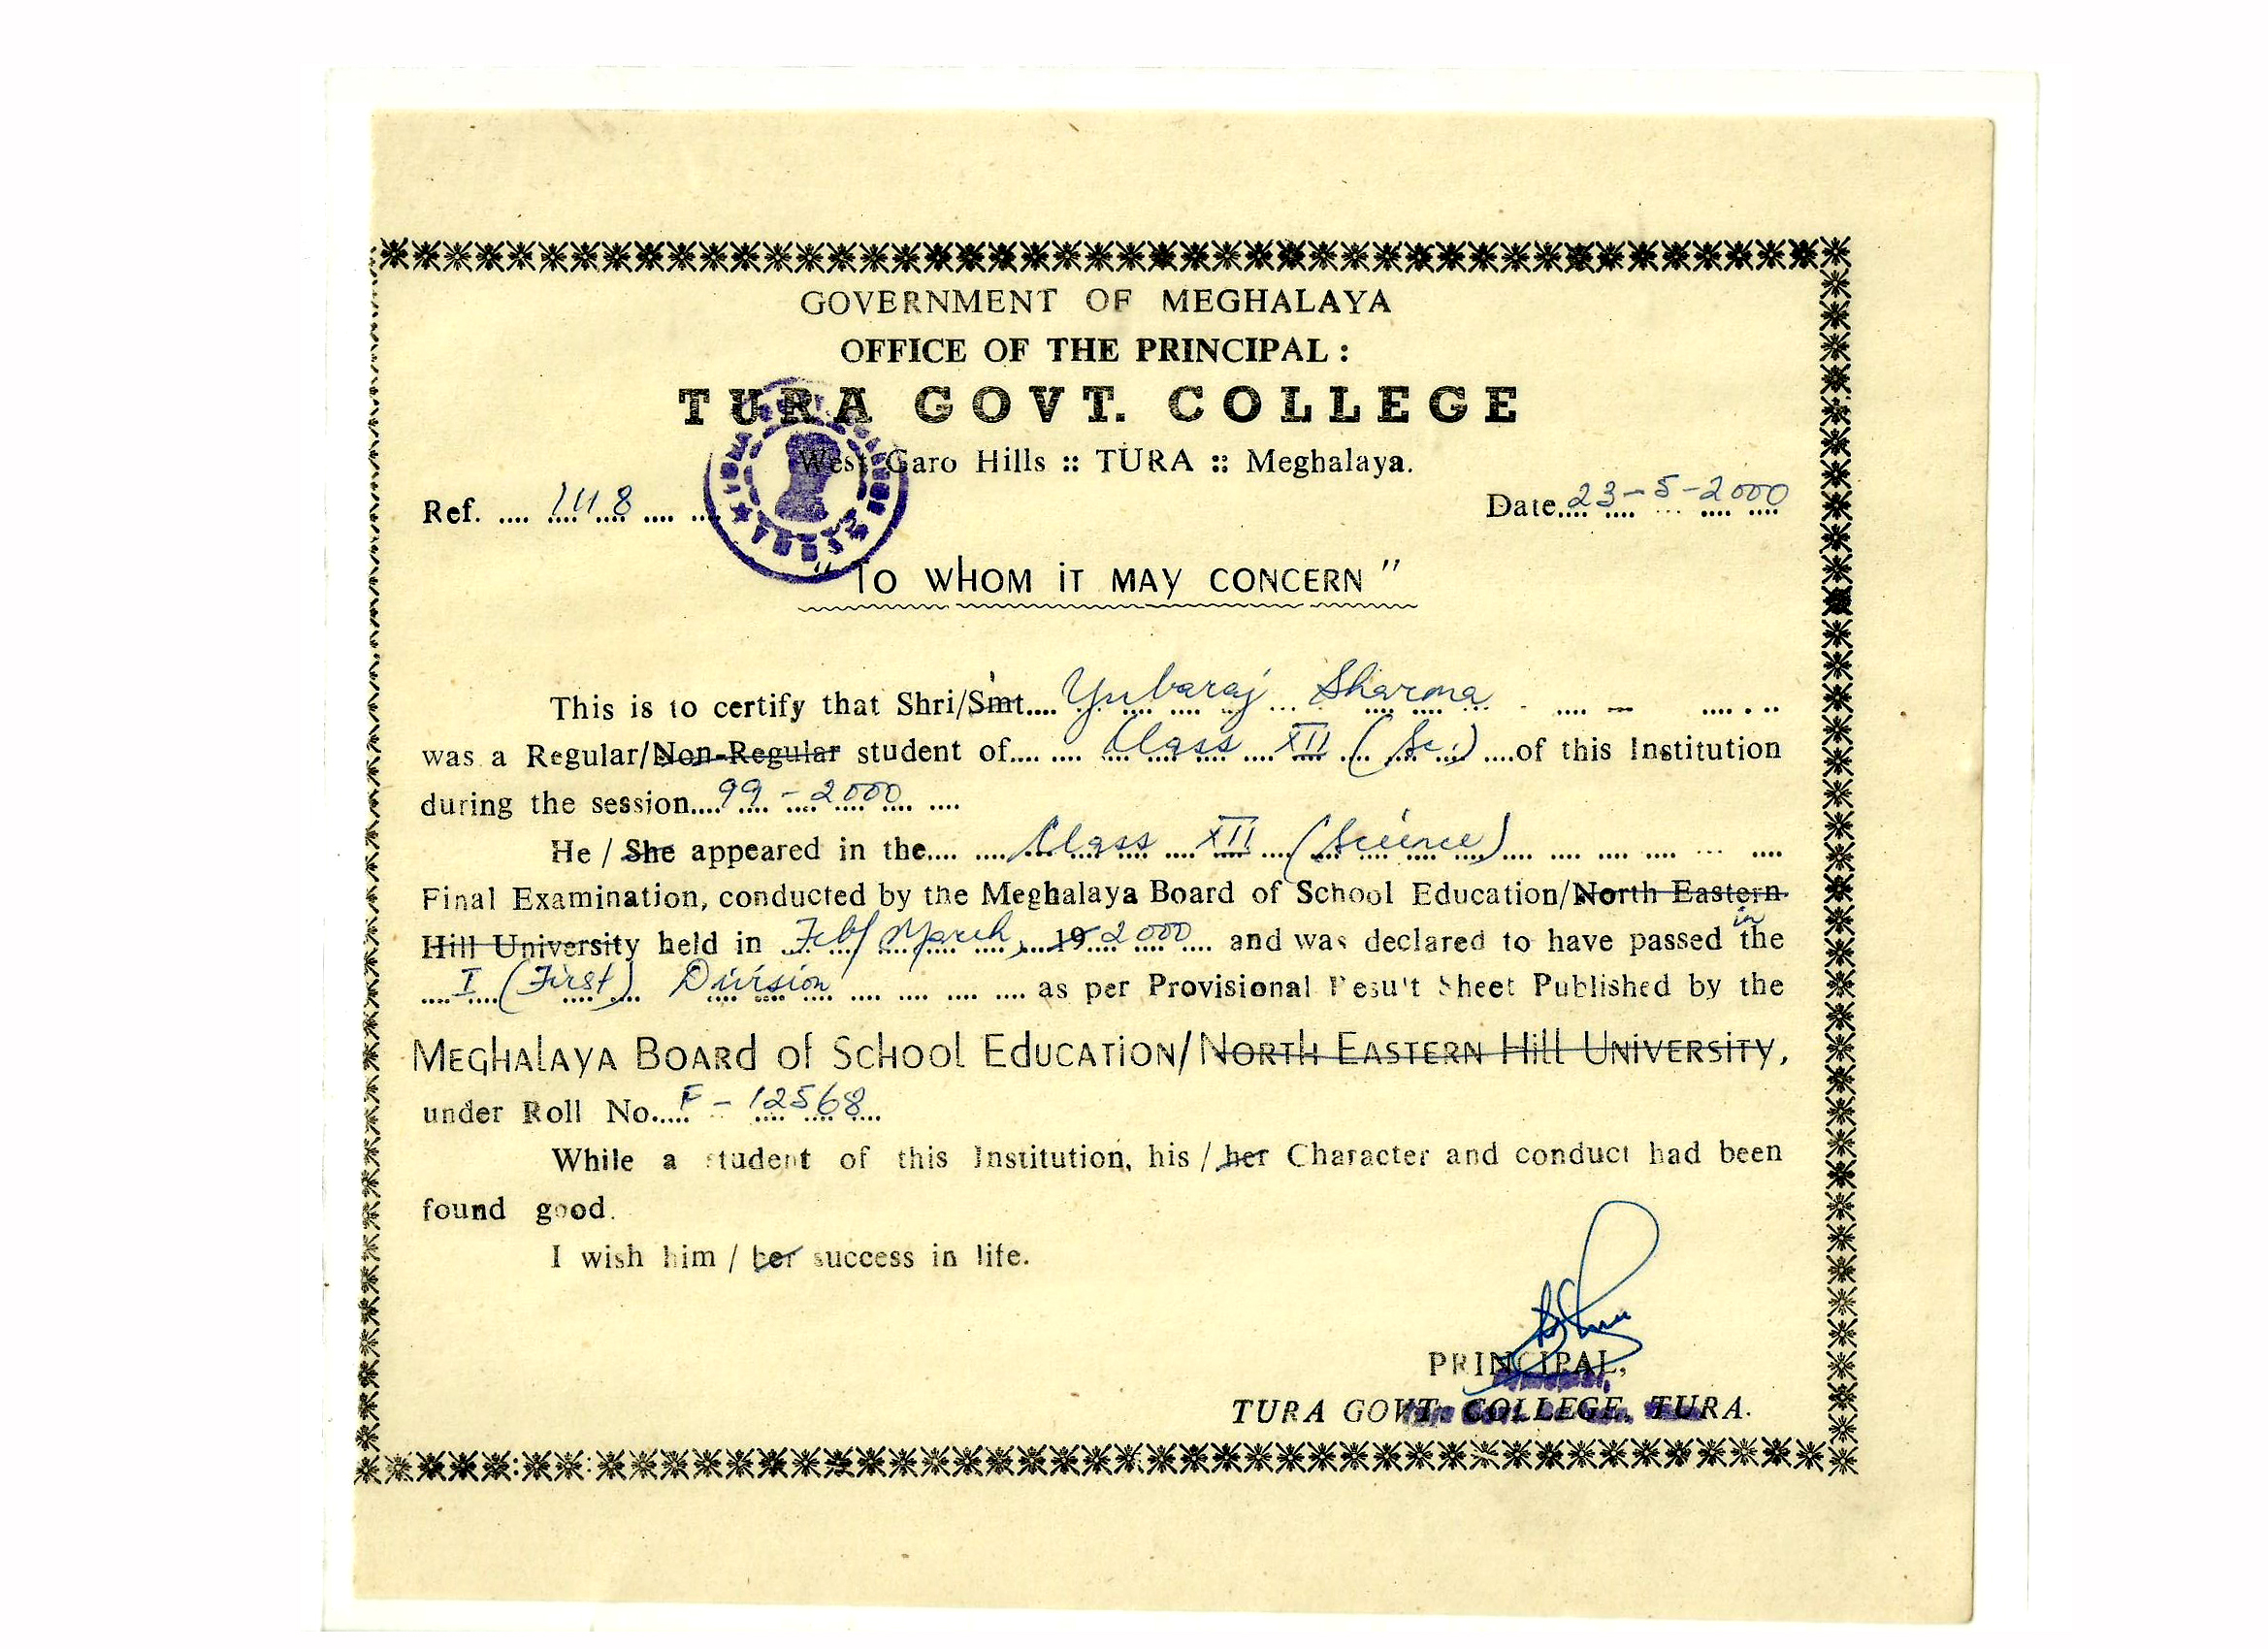 GOVERNMENT OF MEGHALAYA
OFFICE OF THE PRINCIPAL :
TURA GOVT. COLLEGE
West Garo Hills :: TURA :: Meghalaya.
Ref. .... 1118 .... ....
Date....23-5-2000
"TO WHOM IT MAY CONCERN"
This is to certify that Shri/Smt.... Yubaraj Sharma
was a Regular/Non-Regular student of.... Class XII (Sc.) ....of this Institution
during the session....99-2000 ....
He / She appeared in the.... Class XII (Science) ....
Final Examination, conducted by the Meghalaya Board of School Education/North Eastern
Hill University held in Feb/March, 19 2000 .... and was declared to have passed in the
I (First) Division .... as per Provisional Result Sheet Published by the
MEGHALAYA BOARD of SCHOOL EDUCATION/NORTH EASTERN Hill UNIVERSITY,
under Roll No..... F-12568
While a student of this Institution, his / her Character and conduct had been
found good.
I wish him / her success in life.
PRINCIPAL,
TURA GOVT. COLLEGE, TURA.